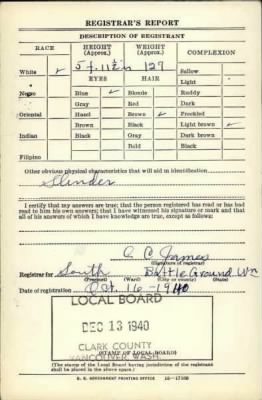 REGISTRAR'S REPORT
DESCRIPTION OF REGISTRANT
RACE HEIGHT (Approx.) WEIGHT (Approx.) COMPLEXION
White ✓ 5 f. 11½ in 129 Sallow
EYES HAIR Light
Negro Blue ✓ Blonde Ruddy
Gray Red Dark
Oriental Hazel Brown ✓ Freckled
Brown Black Light brown ✓
Indian Black Gray Dark brown
Bald Black
Filipino
Other obvious physical characteristics that will aid in identification
Slinder
I certify that my answers are true; that the person registered has read or has had
read to him his own answers; that I have witnessed his signature or mark and that
all of his answers of which I have knowledge are true, except as follows:
C C James
(Signature of registrar)
Registrar for South Battle Ground, Wn
(Precinct) (Ward) (City or county) (State)
Date of registration Oct. 16 - 1940
LOCAL BOARD
DEC 13 1940
CLARK COUNTY
VANCOUVER, WASH.
(STAMP OF LOCAL BOARD)
(The stamp of the Local Board having jurisdiction of the registrant
shall be placed in the above space.)
U. S. GOVERNMENT PRINTING OFFICE 16-17105